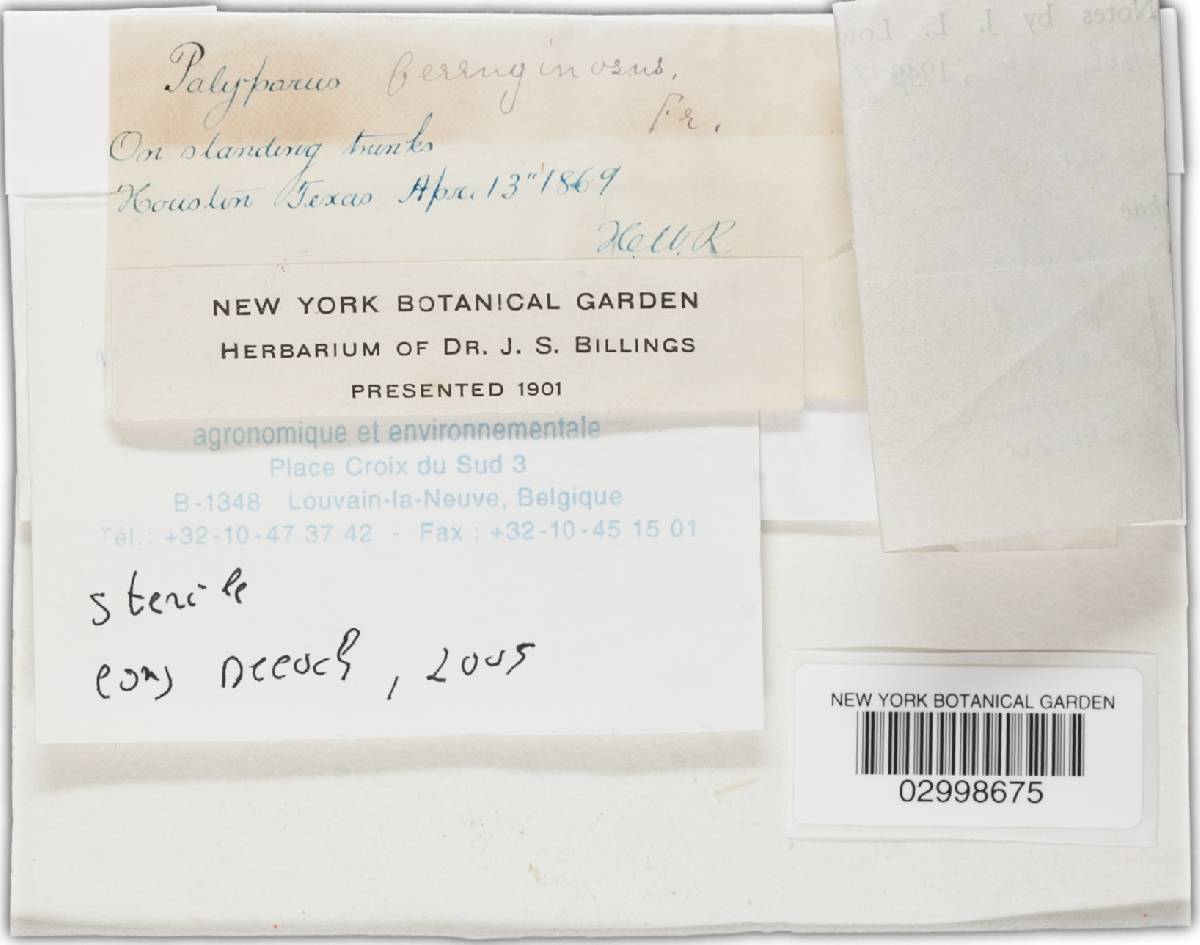 Polyporus ferruginosus.
Fr.
On standing trunks
Houston Texas Apr. 13" 1869
H.W.R.
NEW YORK BOTANICAL GARDEN
HERBARIUM OF DR. J. S. BILLINGS
PRESENTED 1901
agronomique et environnementale
Place Croix du Sud 3
B-1348 Louvain-la-Neuve, Belgique
Tél.: +32-10-47 37 42 - Fax : +32-10-45 15 01
sterile
cons Decock, 2005
Notes by J. L. Low
, 1949
NEW YORK BOTANICAL GARDEN
02998675